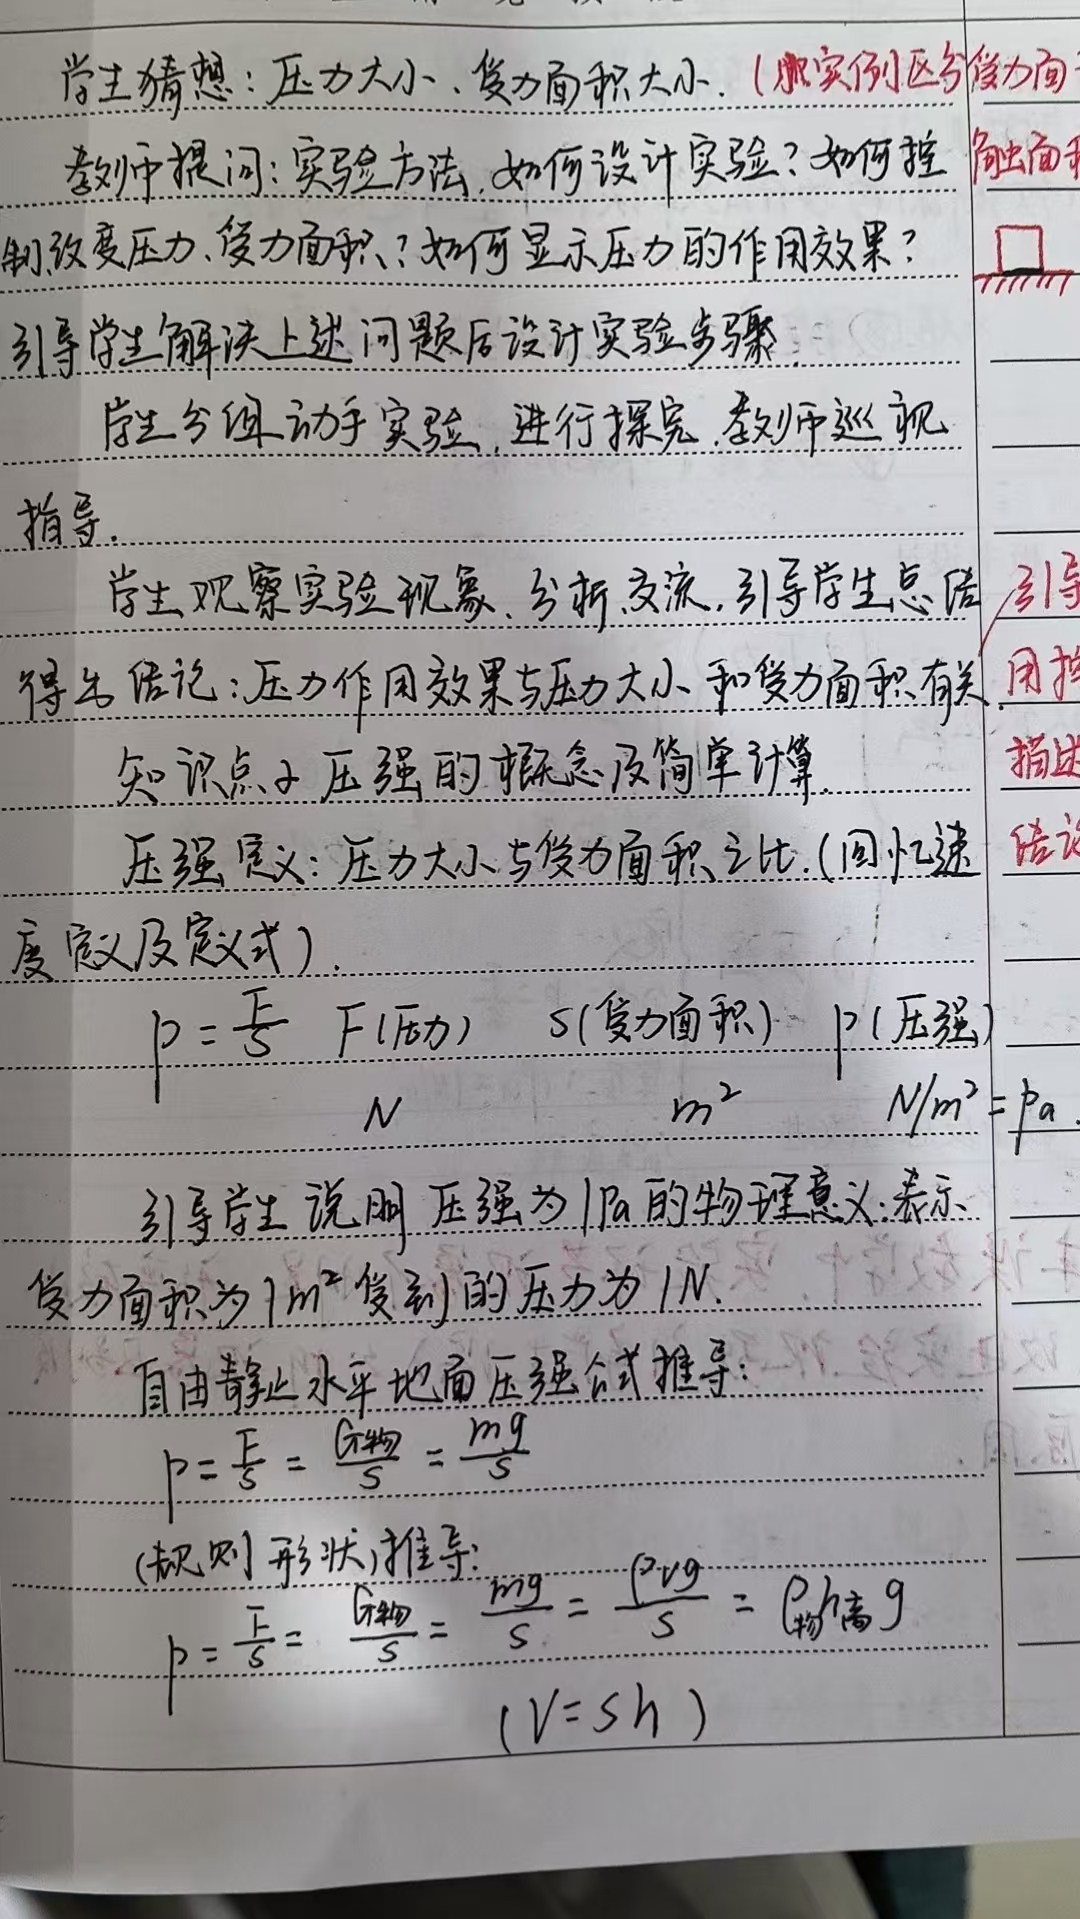 学生猜想：压力大小、受力面积大小. (加实例区分受力面
教师提问：实验方法，如何设计实验？如何控 触面积
制改变压力、受力面积？如何显示压力的作用效果？
引导学生解决上述问题后设计实验步骤.
学生分组动手实验，进行探究，教师巡视
指导.
学生观察实验现象、分析、交流，引导学生总结 引导
得出结论：压力作用效果与压力大小和受力面积有关. 用控
知识点2 压强的概念及简单计算. 描述
压强定义：压力大小与受力面积之比. (回忆速 结论
度定义及定义式).
p=F/S F(压力) S(受力面积) p(压强)
N m² N/m²=Pa.
引导学生说明压强为1Pa的物理意义：表示
受力面积为1m²受到的压力为1N.
自由静止水平地面压强公式推导：
p=F/S=G物/S=mg/S
(规则形状)推导：
p=F/S=G物/S=mg/S=ρvg/S=ρ物h高g
(V=Sh)